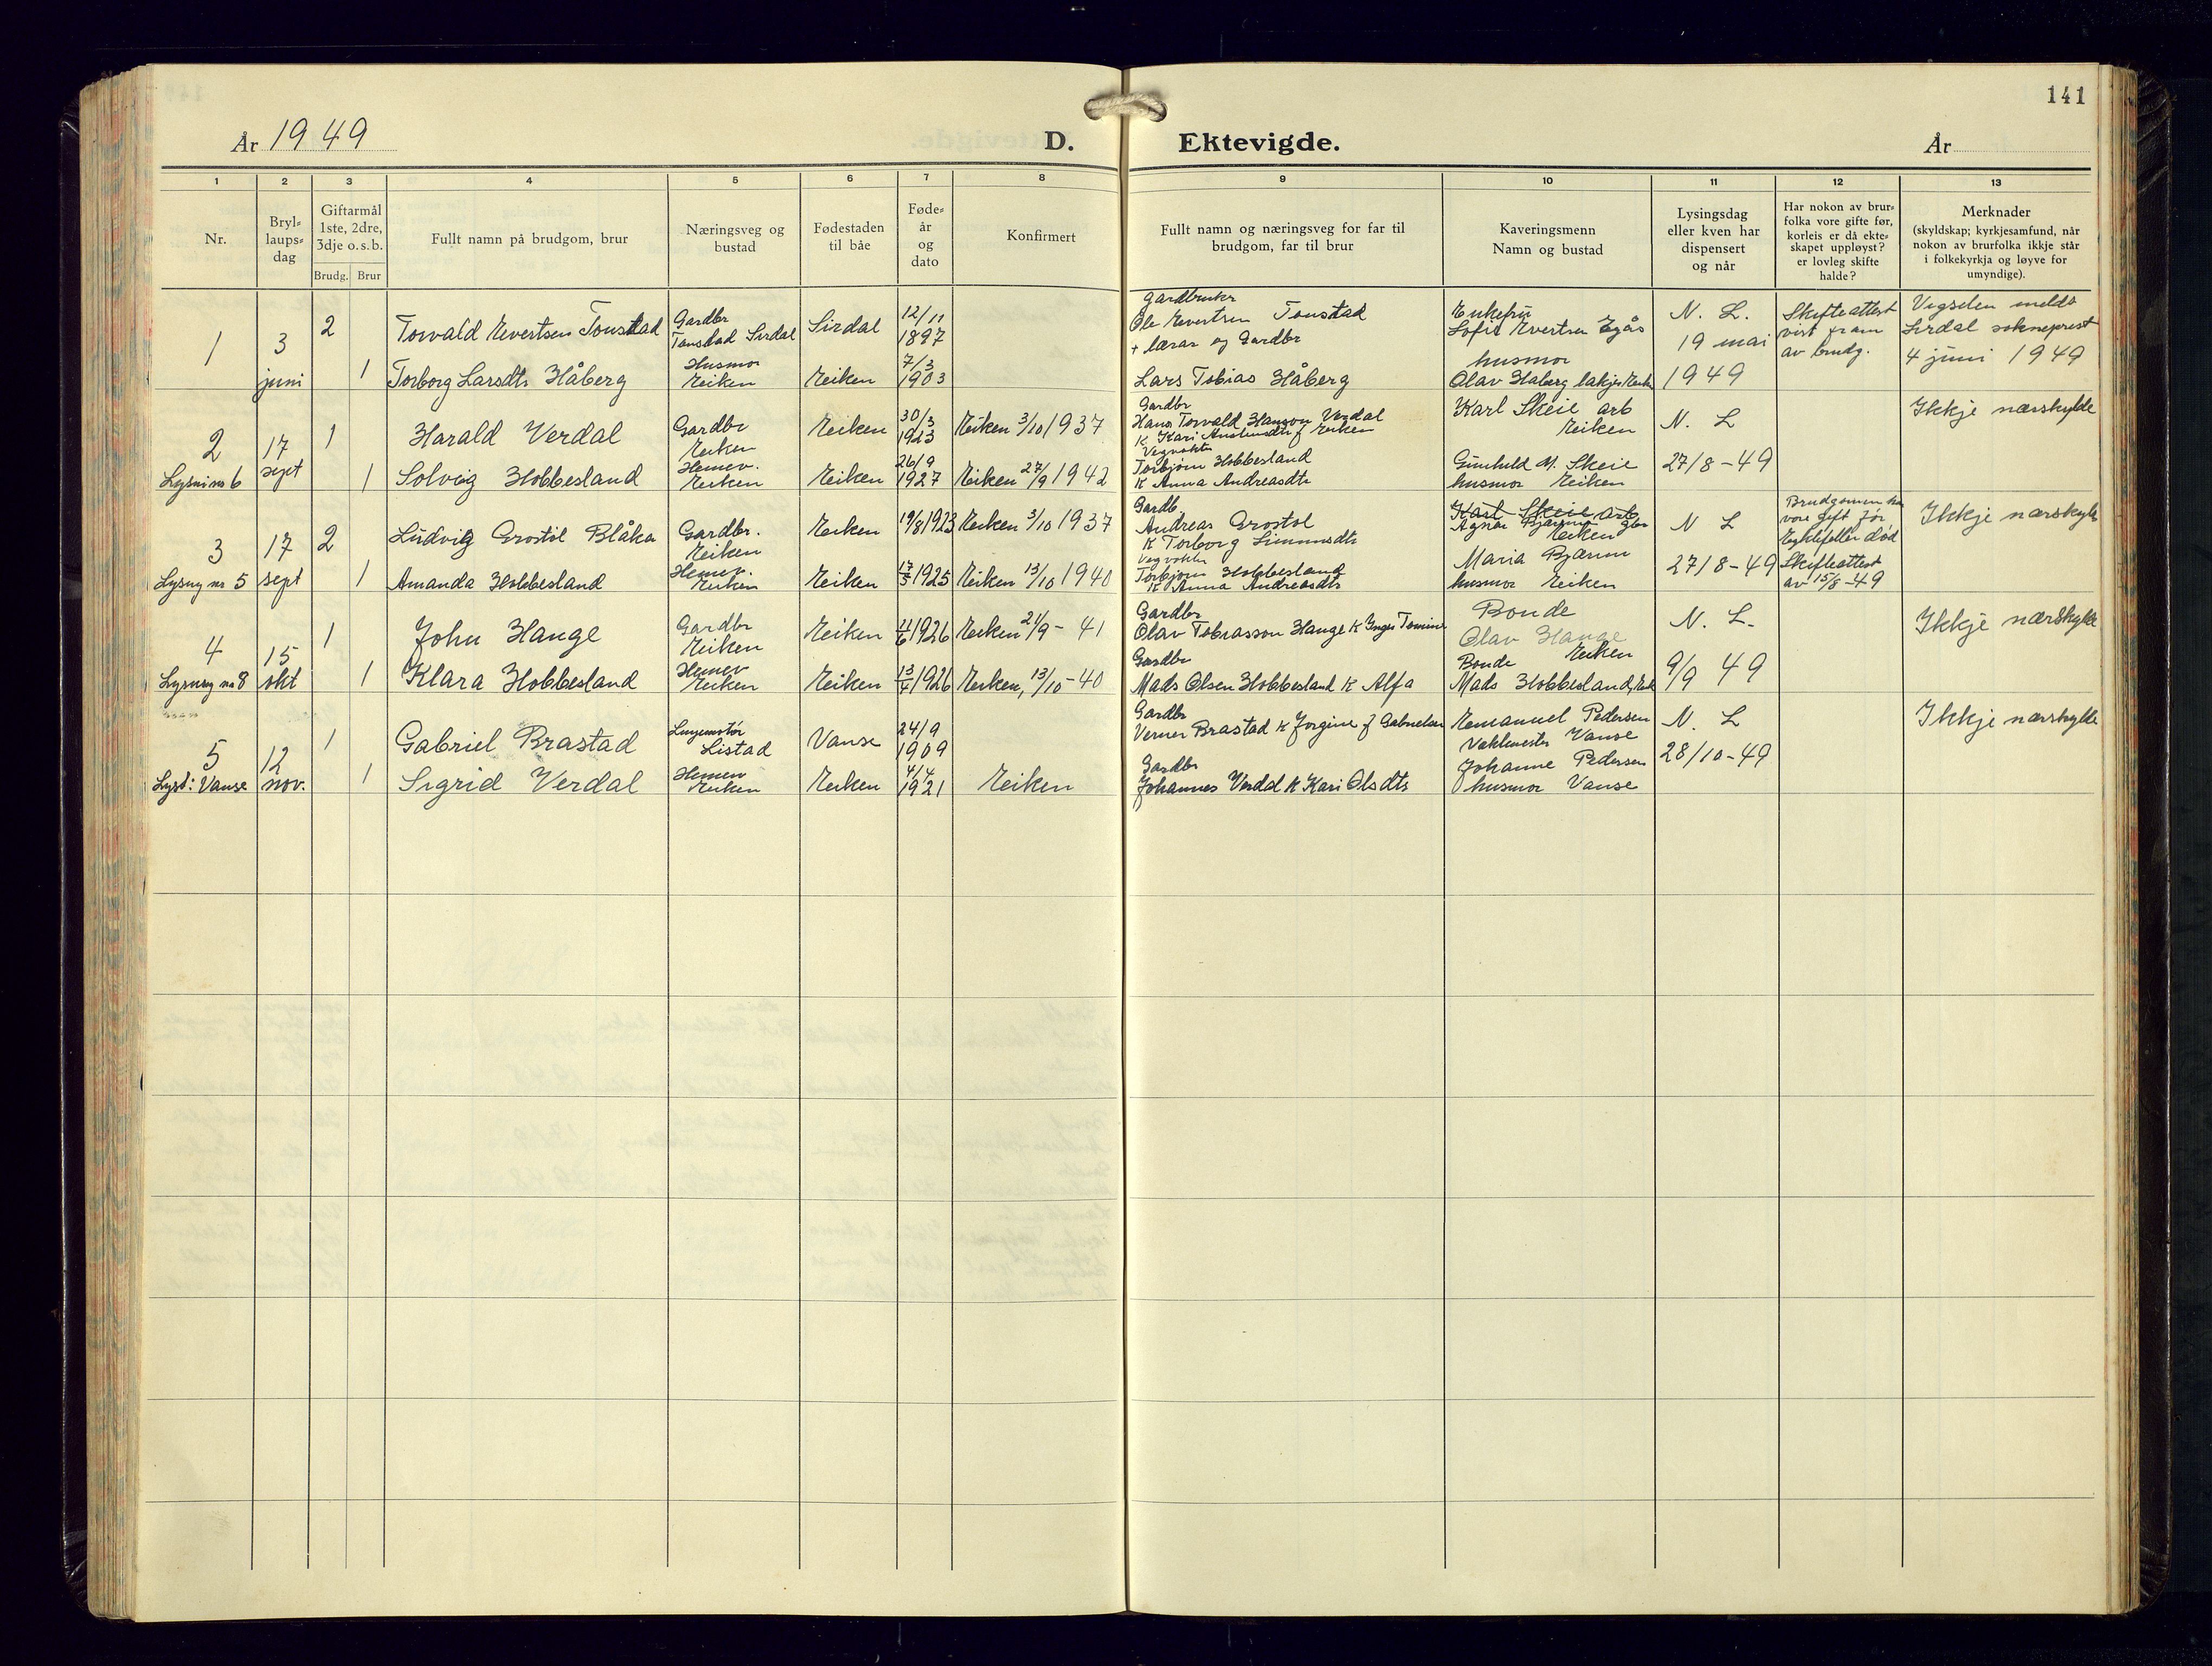 141
År 1949
D.
Ektevigde.
År
1
2
3
4
5
6
7
8
9
10
11
12
13
Nr.
Bryl-
laups-
dag
Giftarmål
1ste, 2dre,
3dje o.s.b.
Brudg. Brur
Fullt namn på brudgom, brur
Næringsveg og
bustad
Fødestaden
til båe
Føde-
år
og
dato
Konfirmert
Fullt namn og næringsveg for far til
brudgom, far til brur
Kaveringsmenn
Namn og bustad
Lysingsdag
eller kven har
dispensert
og når
Har nokon av brur-
folka vore gifte før,
korleis er då ekte-
skapet uppløyst?
er lovleg skifte
halde?
Merknader
(skyldskap; kyrkjesamfund, når
nokon av brurfolka ikkje står
i folkekyrkja og løyve for
umyndige).
1
3
juni
2
Torvald Evertsen Tonstad
Gardbr
Tonstad Sirdal
Sirdal
12/11
1897
Gardbrukr
Ole Evertsen Tonstad
Enkefru
Sofie Evertsen Egås
N. L.
19 mai
1949
Skifteattest
vist fram
av brudg.
Vigselen meldt
Sirdal sokneprest
4 juni 1949
1
Torborg Larsdtr Håberg
Husmor
Eiken
Eiken
7/3
1903
+ lærar og Gardbr
Lars Tobias Håberg
husmor
Olav Håberg
2
Lysni nr 6
17
sept
1
Harald Verdal
Gardbr
Eiken
Eiken
30/3
1923
Eiken 3/10 1937
Gardbr
Hans Torvald Hanson Verdal
K Kari f Eiken
Karl Skeie arb
Eiken
N. L
27/8-49
Ikkje nærskylde
1
Solveig Hobbesland
Hemev.
Eiken
Eiken
26/9
1927
Eiken 27/9 1942
Vegvokter
Torbjørn Hobbesland
K Anna Andreasdtr
Gunhild M. Skeie
husmor Eiken
3
Lysng nr 5
17
sept
2
Ludvig Grostøl Blåka
Gardbr.
Eiken
Eiken
19/8 1923
Eiken 3/10 1937
Gardb.
Andreas Grostøl
K Torborg Simonsdtr
Karl Skeie arb
Agnar Bjærum gbr
Eiken
N L
27/8-49
Brudgomen har
vore gift før
Ektefellen død
Skifteattest
av 15/8-49
Ikkje nærskylde
1
Amanda Hobbesland
Hemev.
Eiken
Eiken
17/5 1925
Eiken 13/10 1940
Vegvokter
Torbjørn Hobbesland
K Anna Andreasdtr
Maria Bjærum
husmor Eiken
4
Lysning nr 8
15
okt
1
John Hauge
Gardbr
Eiken
Eiken
11/6 1926
Eiken 21/9 - 41
Gardbr
Olav Tobiasson Hauge K Inger Tomine
Bonde
Olav Hauge
Eiken
N. L.
9/9 49
Ikkje nærskylde
1
Klara Hobbesland
Hemev
Eiken
Eiken
13/4 1926
Eiken, 13/10-40
Gardbr
Mads Olsen Hobbesland K Alfa
Bonde
Mads Hobbesland, Eik
5
Lyst: Vanse
12
nov.
1
Gabriel Brastad
Listad
Vanse
24/9
1909
Gardbr
Verner Brastad K Jorgine f Gabrielsen
Emanuel Pedersen
Vaktmester Vanse
N. L
28/10-49
Ikkje nærskylde
1
Sigrid Verdal
Hemev
Eiken
Eiken
4/4
1921
Eiken
Gardbr
Johannes Verdal K Kari Olsdtr
Johanne Pedersen
husmor Vanse